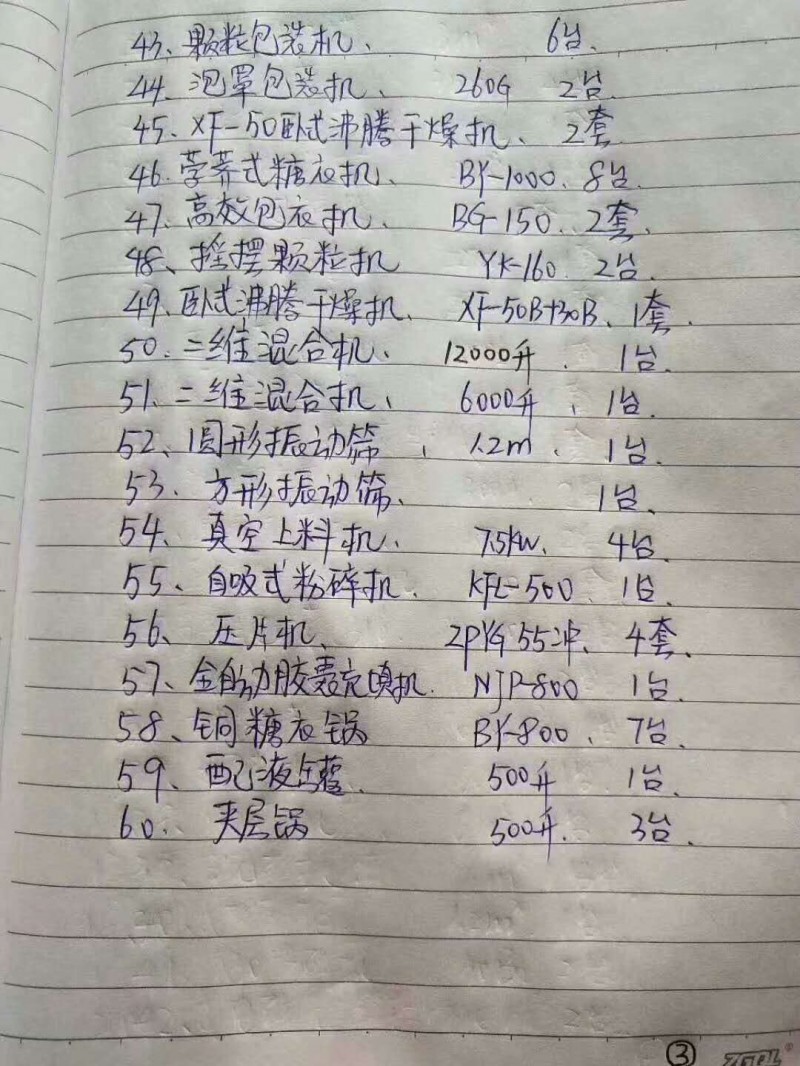 43、颗粒包装机、 6台、
44、泡罩包装机、 260G 2台、
45、XF-50卧式沸腾干燥机、 2套
46、营养式糖衣机、 BY-1000、8台、
47、高效包衣机、 BG-150、2套、
48、摇摆颗粒机 YK-160 2台、
49、卧式沸腾干燥机、 XF-50B+30B、1套、
50、二维混合机、 12000升、 1台、
51、二维混合机、 6000升、 1台、
52、圆形振动筛、 1.2m、 1台、
53、方形振动筛、 1台、
54、真空上料机、 7.5kw、 4台、
55、自吸式粉碎机、 KFL-500 1台、
56、压片机、 ZPYG55冲、4套、
57、全自动胶囊充填机、 NJP-800 1台、
58、铜糖衣锅 BY-800、7台、
59、配液罐 500升 1台、
60、夹层锅 500升、 3台、
③